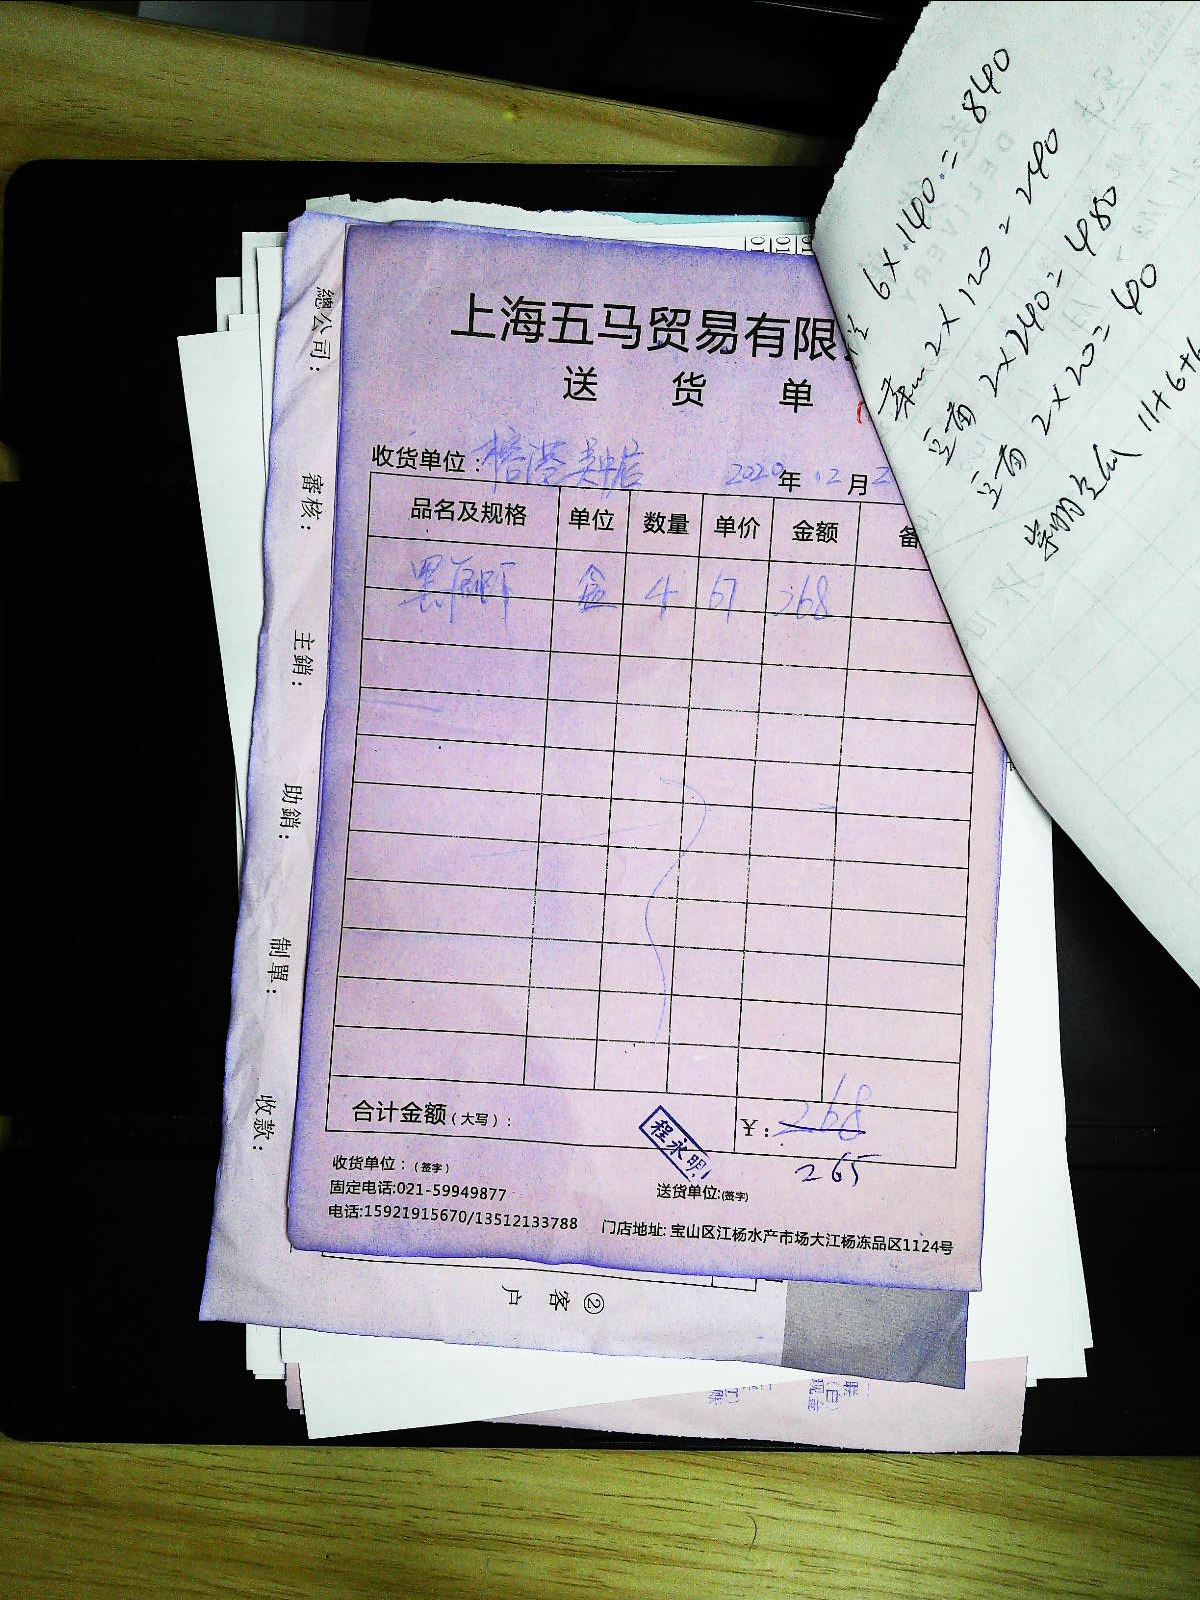 上海五马贸易有限
送 货 单
收货单位：榕港吴中店 2020年12月2
品名及规格 单位 数量 单价 金额 备
黑虎虾 盒 4 67 268
合计金额（大写）： ￥：268
265
程永明
收货单位：（签字） 送货单位:(签字)
固定电话:021-59949877
电话:15921915670/13512133788 门店地址: 宝山区江杨水产市场大江杨冻品区1124号
總公司：
審核：
主銷：
助銷：
制單：
收款：
②客户
6×140=840
2×120=240
2×240=480
2×20=40
11+6+6
DELIVERY